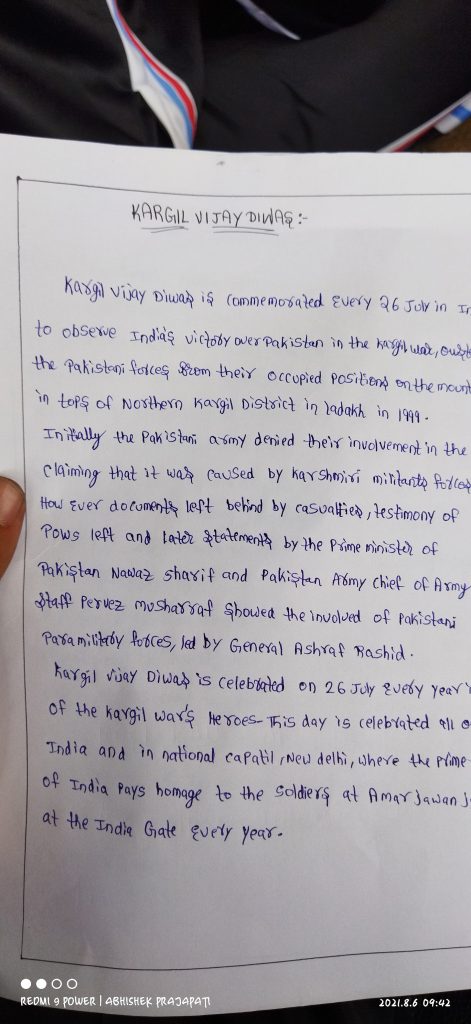 KARGIL VIJAY DIWAS:-
Kargil Vijay Diwas is commemorated Every 26 July in In
to observe India's victory over Pakistan in the Kargil war, oust
the Pakistani forces from their occupied positions on the mount
in tops of Northern Kargil District in ladakh in 1999.
Initally the Pakistani army denied their involvement in the
claiming that it was caused by karshmiri militants forces
How Ever documents left behind by casualties, testimony of
POWs left and later statements by the Prime minister of
Pakistan Nawaz sharif and Pakistan Army chief of Army
Staff Pervez musharraf showed the involved of Pakistani
Paramilitary forces, led by General Ashraf Rashid.
Kargil Vijay Diwas is celebrated on 26 July every year
of the Kargil war's Heroes- This day is celebrated all o
India and in national capatil, New delhi, where the Prime
of India Pays homage to the soldiers at Amar Jawan J
at the India Gate Every Year.
REDMI 9 POWER | ABHISHEK PRAJAPATI
2021.8.6 09:42